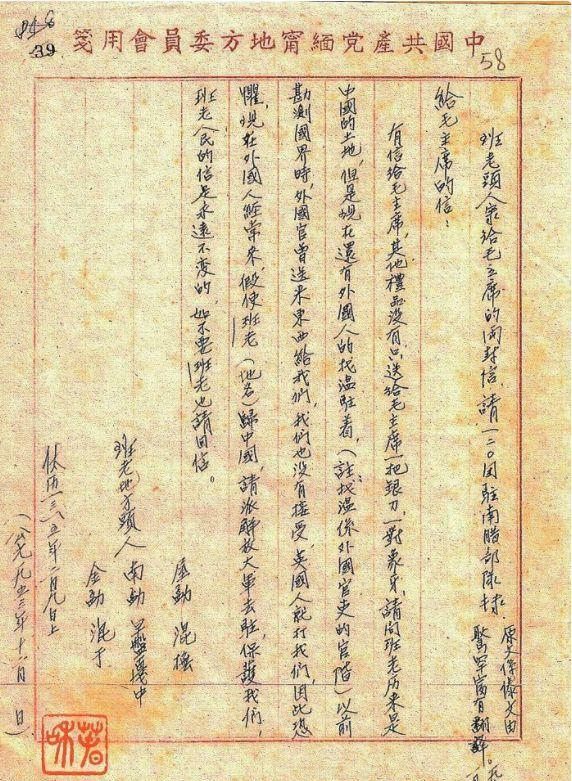 中國共產党緬甯地方委員會用箋
39
58
班老頭人家給毛主席的
信,請一二〇团駐南腊部隊
原文係傣文由
有翻譯。
給毛主席的信:
有信給毛主席,其他禮品没有只送給毛主席一把銀刀,一對象牙,請問班老历来是
中國的土地,但是現在還有外國人的找温駐着,(註找温係外國官吏的官階)以前
勘測國界時,外國官曾送米東西給我們,我們也没有接受,英國人就打我們,因此恐
懼,現在外國人經常來,假使班老(地名)歸中國,請派解放大軍去駐,保護我們,
班老人民的信是永遠不變的,如不要班老也請回信。
班老地方頭人
南勐
混
傣历一三八五年一月九日上
一九五三年十一月 日